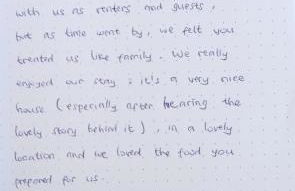 with us as renters and guests,
but as time went by, we felt you
treated us like family. We really
enjoyed our stay; it's a very nice
house (especially after hearing the
lovely story behind it), in a lovely
location and we loved the food you
prepared for us.